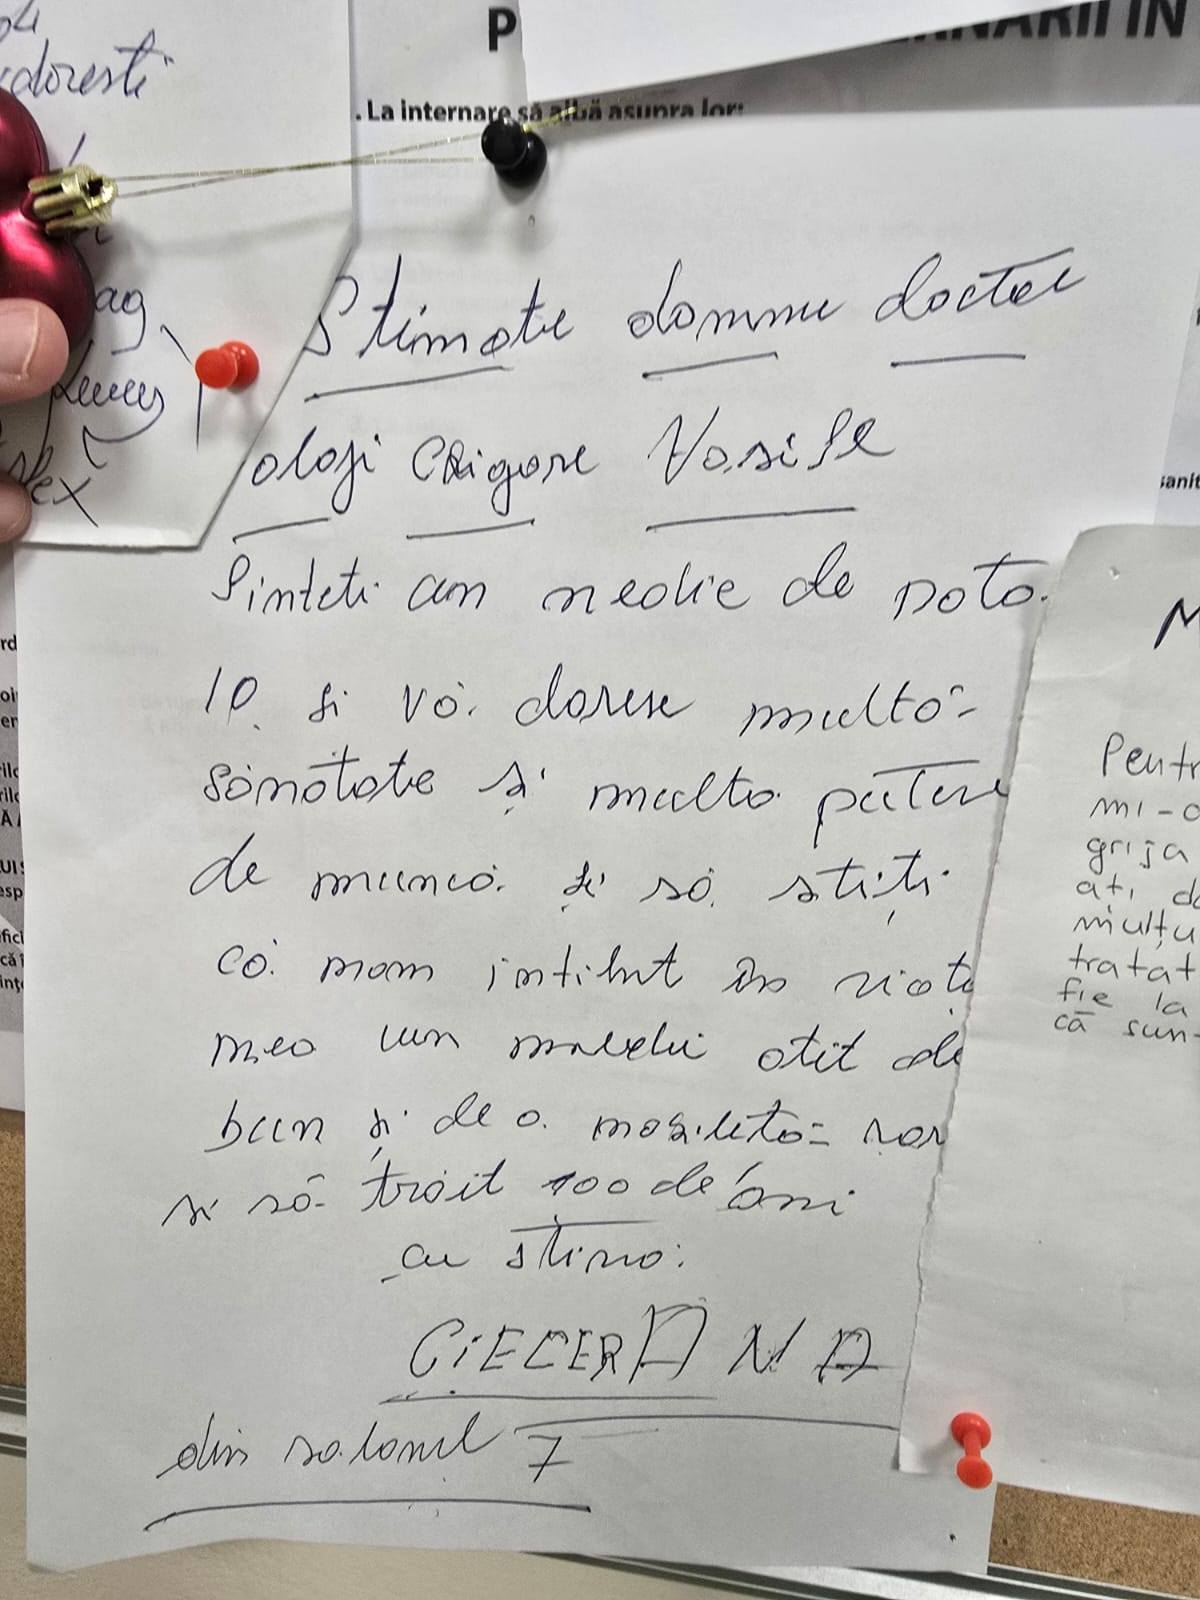 doresti
P
. La internare să aibă asupra lor:
ag
Stimate domnu doctor
ologi Grigore Vasile
Sinteti un medic de nota.
10 si vă doresc multă
sănătate și multa putere
de muncă. și să știți
că mam intilnt în viata
mea un medic atit de
bun și de o
si să trăit 100 de ani
cu stima.
CiECERANA
din salonul 7
sanit
M
Pentr
mi-a
grija
ati da
mulțu
tratat
fie la
că sun